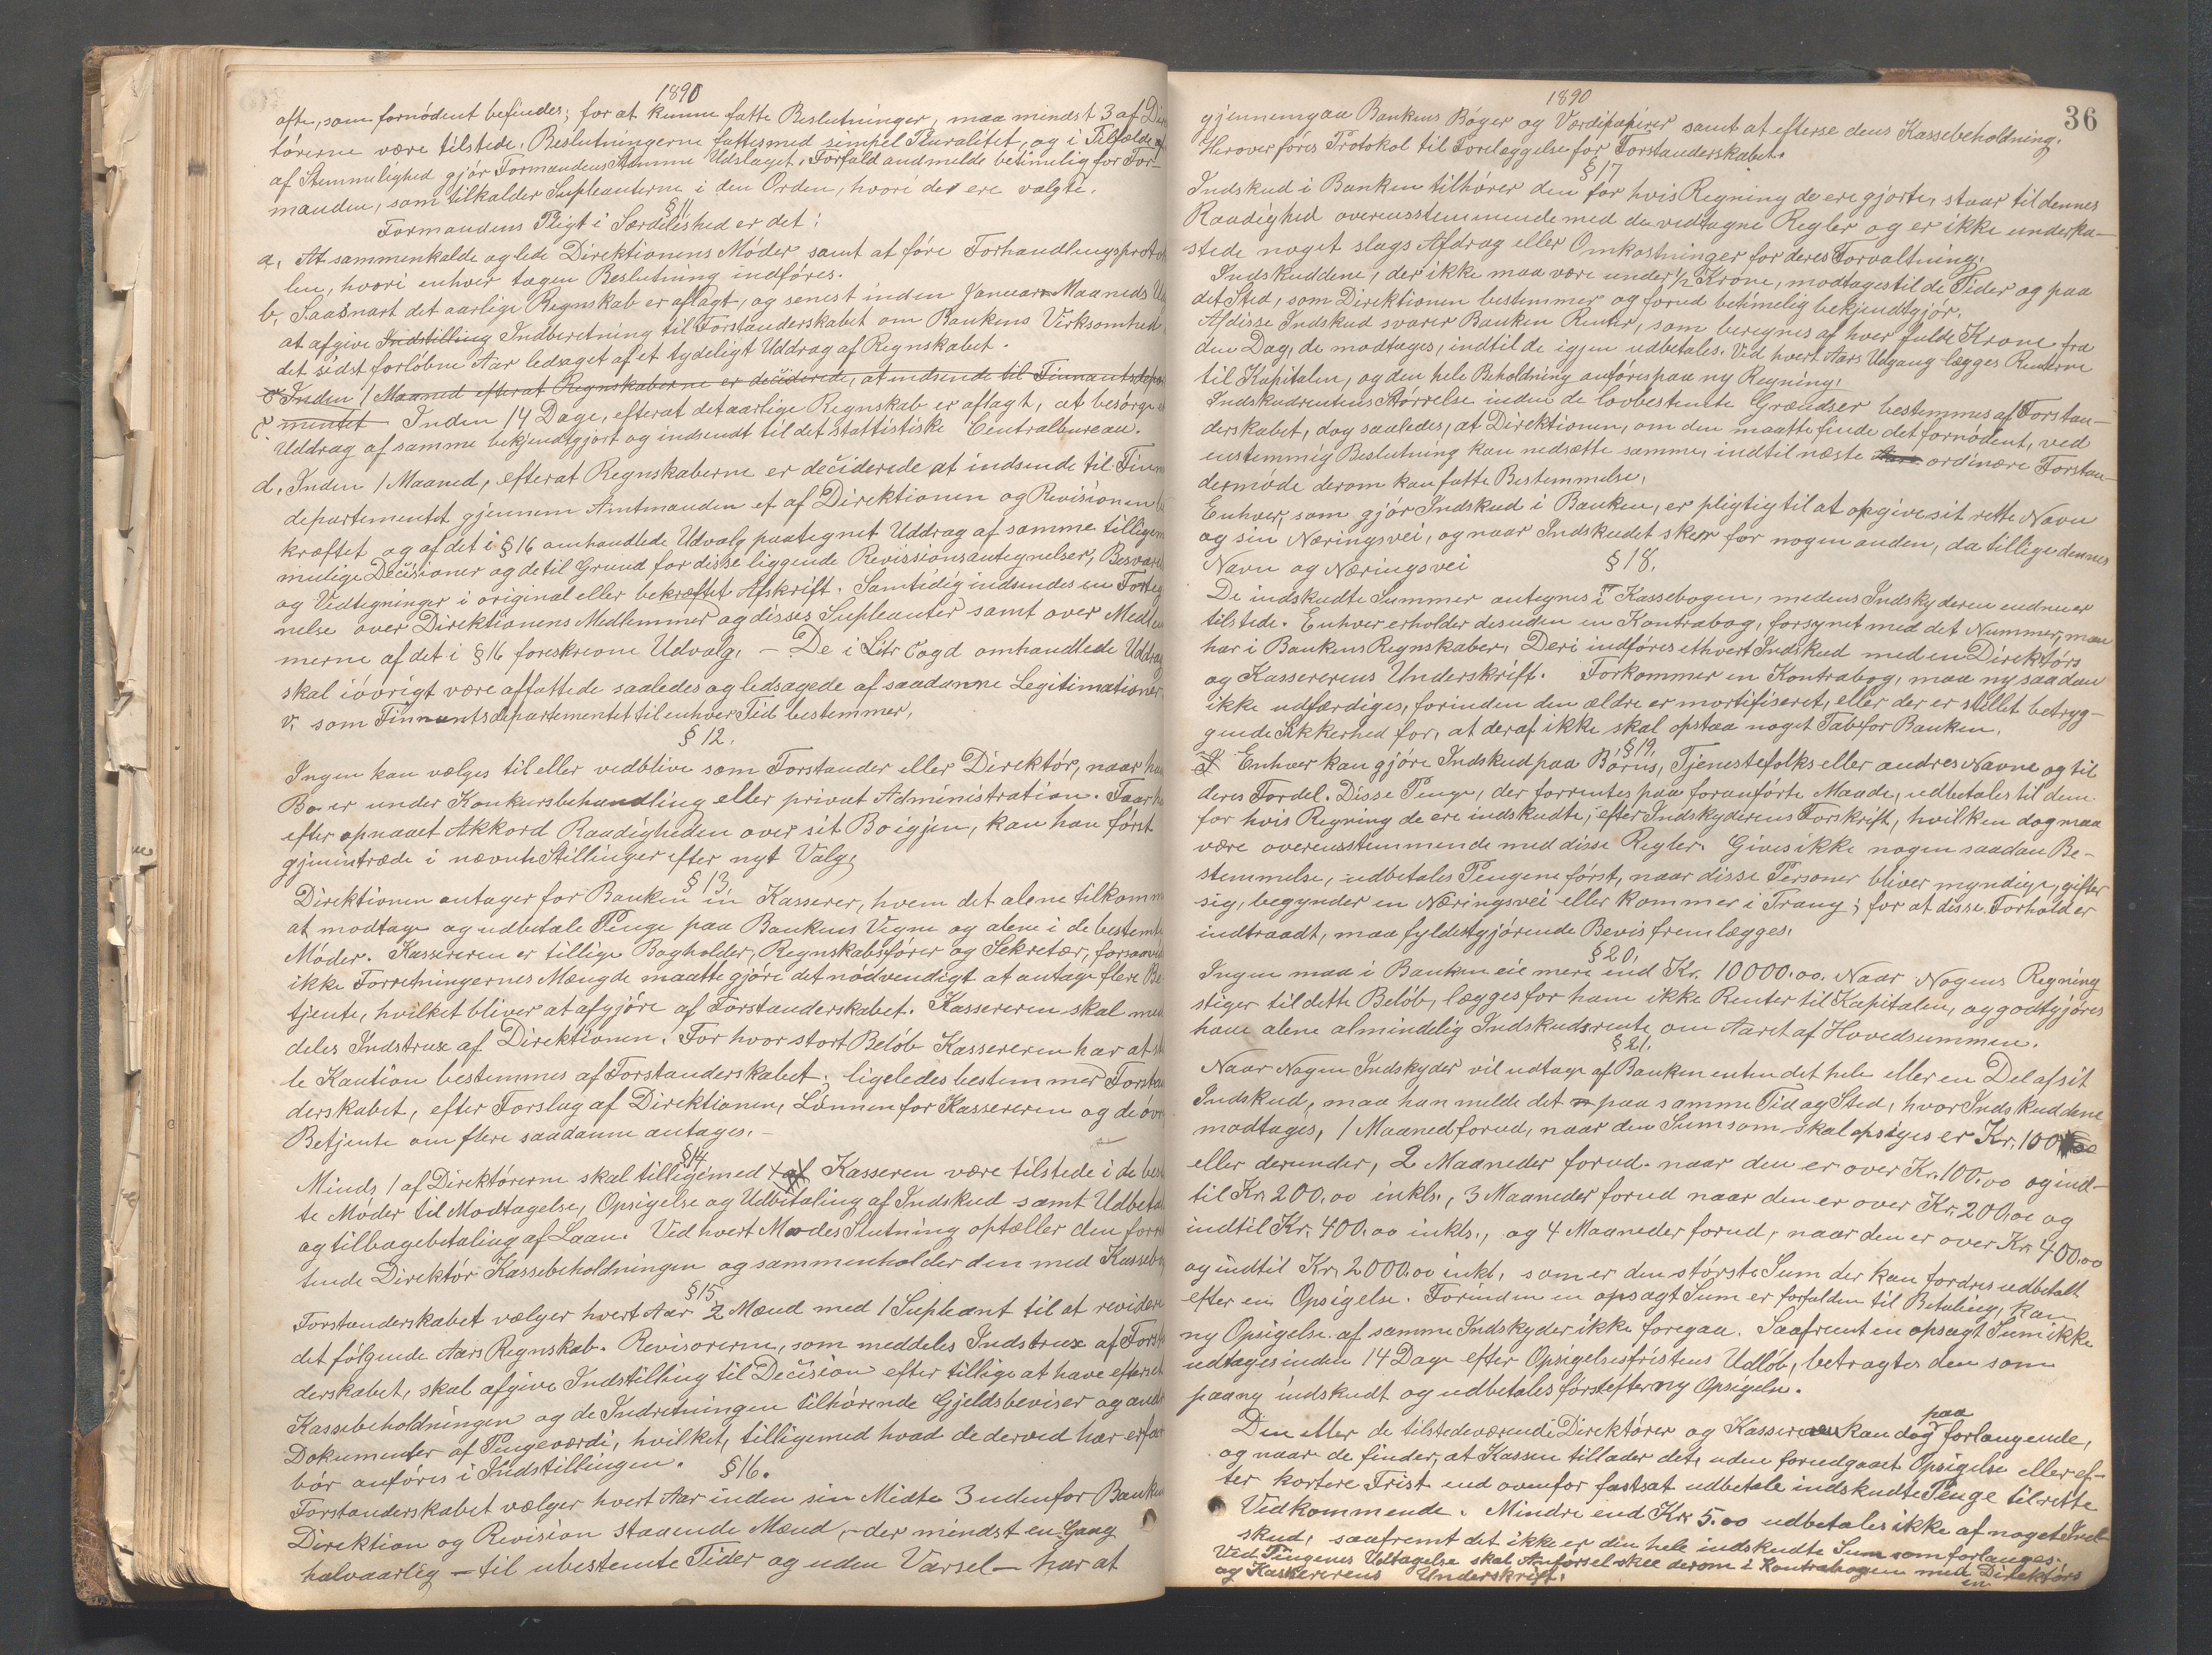 1890
ofte, som fornødent befindes; for at kunne fatte Beslutninger, maa mindst 3 af Dire
törerne være tilstede. Beslutningerne fattes med simpel Pluralitet, og i Tilfælde af
af Stemmelighed gjør Formandens Stemme Udslaget. Forfald anmelde betimelig for For-
manden, som tilkalder Supleanterne i den Orden, hvori de ere valgte.
§ 11
Formandens Pligt i Særdeleshed er det:
a, At sammenkalde og lede Direktionens Møder samt at føre Forhandlingsproto
len, hvori enhver tagen Beslutning indføres.
b, Saasnart det aarlige Regnskab er aflagt, og senest inden Januar Maaneds Ud
at afgive Indstilling Indberetning til Forstanderskabet om Bankens Virksomhed
det sidst forløbne Aar ledsaget af et tydeligt Uddrag af Regnskabet.
c Inden 1 Maaned efterat Regnskaberne er deciderede, at indsende til Finantsdepar
c. mentet Inden 14 Dage, efterat det aarlige Regnskab er aflagt, at besørge et
Uddrag af samme bekjendtgjort og indsendt til det stattistiske Centralbureau.
d, Inden 1 Maaned, efterat Regnskaberne er deciderede at indsende til Finn
departementet gjennem Amtmanden et af Direktionen og Revisionen be
kræftet og af det i § 16 omhandlede Udvalg paategnet Uddrag af samme tilligem
mulige Decisioner og de til Grund for disse liggende Revissionsantegnelser, Besvare
og Vedtegninger i original eller bekræftet Afskrift. Samtidig indsendes en Forteg
nelse over Direktionens Medlemmer og disses Supleanter samt over Medlem
merne af det i § 16 foreskrevne Udvalg. – De i Litr c og d omhandlede Uddrag
skal iøvrigt være affattede saaledes og ledsagede af saadanne Legitimationer
v. som Finnantsdepartementet til enhver Tid bestemmer.
§ 12.
Ingen kan vælges til eller vedblive som Forstander eller Direktør, naar ha
Bo er under Konkursbehandling eller privat Administration. Faar ha
efter opnaaet Akkord Raadigheden over sit Bo igjen, kan han først
gjenintræde i nævnte Stillinger efter nyt Valg.
§ 13.
Direktionen antager for Banken en Kasserer, hvem det alene tilkomm
at modtage og udbetale Penge paa Bankens Vegne og alene i de bestemte
Møder. Kassereren er tillige Bogholder, Regnskabsfører og Sekretær, forsaavid
ikke Forretningernes Mængde maatte gjøre det nødvendigt at antage flere Be
tjente, hvilket bliver at afgjøre af Forstanderskabet. Kassereren skal med
deles Indstrux af Direktionen. For hvor stort Beløb Kassereren har at stil
le Kaution bestemmes af Forstanderskabet; ligeledes bestemmer Forstan
derskabet, efter Forslag af Direktionen, Lønnen for Kassereren og de øvr
Betjente om flere saadanne antages. –
§ 14
Minds 1 af Direktørerne skal tilligemed Kasseren være tilstede i de best
te Møder til Modtagelse, Opsigelse og Udbetaling af Indskud samt Udbetal
og tilbagebetaling af Laan. Ved hvert Mødes Slutning optæller den forret
tende Direktør Kassebeholdningen og sammenholder den med Kassebog
§ 15.
Forstanderskabet vælger hvert Aar 2 Mænd med 1 Supleant til at revidere
det følgende Aars Regnskab. Revisorerne, som meddeles Indstrux af Forsta
derskabet, skal afgive Indstilling til Decision efter tillige at have efterset
Kassebeholdningen og de Indretningen tilhørende Gjeldsbeviser og andr
Dokumenter af Pengeværdi, hvilket, tilligemed hvad de derved har erfar
bør anføres i Indstillingen.
§ 16.
Forstanderskabet vælger hvert Aar inden sin Midte 3 udenfor Banken
Direktion og Revision staaende Mænd, – der mindst en Gang
halvaarlig – til ubestemte Tider og uden Varsel – har at
1890
36
gjennemgaa Bankens Bøger og Værdipapirer samt at efterse dens Kassebeholdning.
Herover føres Protokol til Foreleggelse for Forstanderskabet.
§ 17
Indskud i Banken tilhører den for hvis Regning de ere gjorte, staar til dennes
Raadighed overensstemmende med de vedtagne Regler og er ikke underka-
stede noget slags Afdrag eller Omkostninger for deres Forvaltning.
Indskuddene, der ikke maa være under 1/2 Krone, modtages til de Tider og paa
det Sted, som Direktionen bestemmer og forud betimelig bekjendtgjør.
Af disse Indskud svarer Banken Renter, som beregnes af hver fulde Krone fra
den Dag, de modtages, indtil de igjen udbetales. Ved hvert Aars Udgang lægges Renterne
til Kapitalen, og den hele Beholdning anføres paa ny Regning.
Indskudrentens Størrelse inden de lovbestemte Grændser bestemmes af Forstan-
derskabet, dog saaledes, at Direktionen, om den maatte finde det fornødent, ved
enstemmig Beslutning kan nedsætte samme, indtil næste ordinære Forstan-
dermøde derom kan fatte Bestemmelse.
Enhver, som gjør Indskud i Banken, er pligtig til at opgive sit rette Navn
og sin Næringsvei, og naar Indskudet sker for nogen anden, da tillige dennes
Navn og Næringsvei
§ 18.
De indskudte Summer antegnes i Kassebogen, medens Indskyderen endnu er
tilstede. Enhver erholder desuden en Kontrabog, forsynet med det Nummer, man
har i Bankens Regnskaber. Deri indføres ethvert Indskud med en Direktørs
og Kassererens Underskrift. Forkommer en Kontrabog, maa ny saadan
ikke udfærdiges, forinden den ældre er mortifiseret, eller der er stillet betryg-
gende Sikkerhed for, at deraf ikke skal opstaa noget Tab for Banken.
§ 19.
Enhver kan gjøre Indskud paa Børns, Tjenestefolks eller andres Navne og til
deres Fordel. Disse Penge, der forrentes paa foranførte Maade, udbetales til dem
for hvis Regning de ere indskudte, efter Indskyderens Forskrift, hvilken dog maa
være overensstemmende med disse Regler. Gives ikke nogen saadan Be-
stemmelse, udbetales Pengene først, naar disse Personer bliver myndige, gifter
sig, begynder en Næringsvei eller kommer i Trang; for at disse Forhold er
indtraadt, maa fyldestgjørende Bevis fremlægges.
§ 20.
Ingen maa i Banken eie mere end Kr. 10000.00. Naar Nogens Regning
stiger til dette Beløb, lægges for ham ikke Renter til Kapitalen, og godtgjøres
ham alene almindelig Indskudsrente om Aaret af Hovedsummen.
§ 21.
Naar Nogen Indskyder vil udtage af Banken enten det hele eller en Del af sit
Indskud, maa han melde det paa samme Tid og Sted, hvor Indskuddene
modtages, 1 Maaned forud, naar den Sum som skal opsiges er Kr. 100
eller derunder, 2 Maaneder forud. naar den er over Kr. 100.00 og ind-
til Kr. 200.00 inkls., 3 Maaneder forud naar den er over Kr. 200.00 og
indtil Kr. 400.00 inkls., og 4 Maaneder forud, naar den er over Kr. 400.00
og indtil Kr. 2000.00 inkl., som er den største Sum der kan fordres udbetalt
efter en Opsigelse. Forinden en opsagt Sum er forfalden til Betaling, kan
ny Opsigelse af samme Indskyder ikke foregaa. Saafremt en opsagt Sum ikke
udtages inden 14 Dage efter Opsigelsesfristens Udløb, betragtes den som
paany indskudt og udbetales først efter ny Opsigelse.
Den eller de tilstedeværende Direktører og Kassereren kan dog paa forlangende,
og naar de finder, at Kassen tillader det, uden forudgaaet Opsigelse eller ef-
ter kortere Frist end ovenfor fastsat udbetale indskudte Penge til rette
Vedkommende. Mindre end Kr. 5.00 udbetales ikke af noget Ind-
skud, saafremt det ikke er den hele indskudte Sum som forlanges.
Ved Pengenes Udtagelse skal Anførsel skee derom i Kontrabogen med en Direktørs
og Kassererens Underskrift.